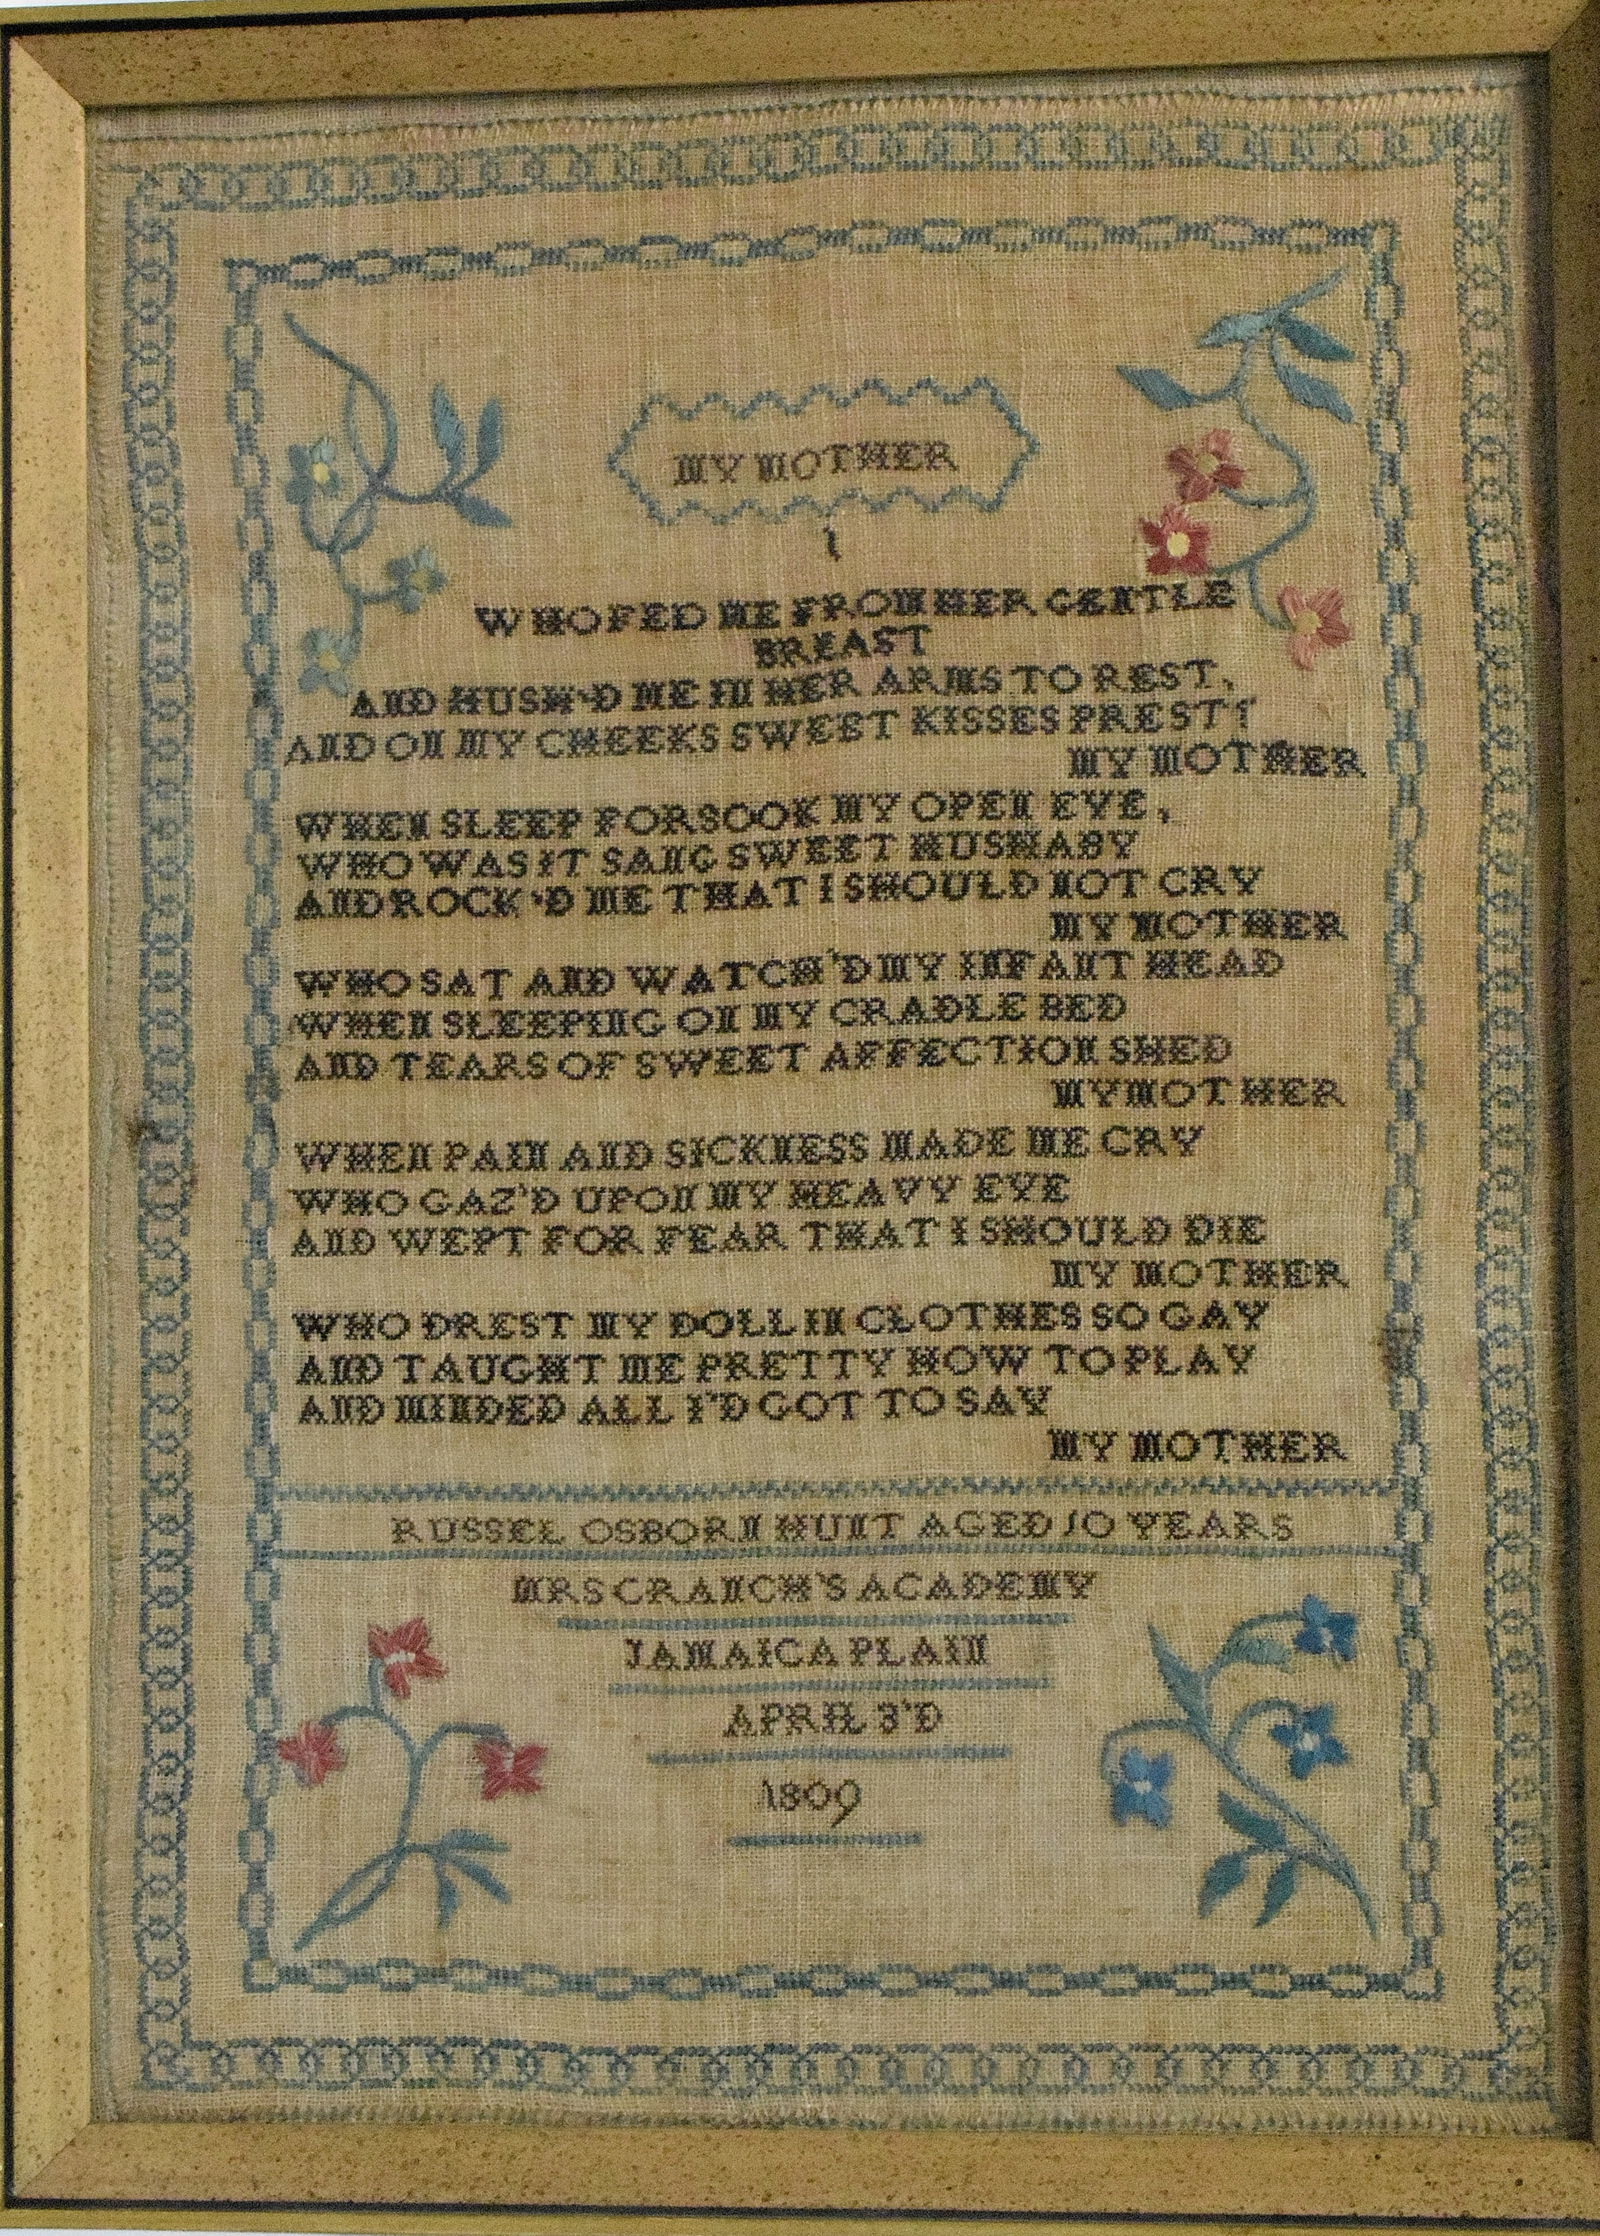 MY MOTHER
1
WHO FED ME FROM HER GENTLE
BREAST
AND HUSH'D ME IN HER ARMS TO REST,
AND ON MY CHEEKS SWEET KISSES PREST?
MY MOTHER
WHEN SLEEP FORSOOK MY OPEN EYE,
WHO WAS IT SANG SWEET HUSHABY
AND ROCK'D ME THAT I SHOULD NOT CRY
MY MOTHER
WHO SAT AND WATCH'D MY INFANT HEAD
WHEN SLEEPING ON MY CRADLE BED
AND TEARS OF SWEET AFFECTION SHED
MY MOTHER
WHEN PAIN AND SICKNESS MADE ME CRY
WHO GAZ'D UPON MY HEAVY EYE
AND WEPT FOR FEAR THAT I SHOULD DIE
MY MOTHER
WHO DREST MY DOLL IN CLOTHES SO GAY
AND TAUGHT ME PRETTY HOW TO PLAY
AND MINDED ALL I'D GOT TO SAY
MY MOTHER
RUSSEL OSBORN HUNT AGED 10 YEARS
MRS CRANCH'S ACADEMY
JAMAICA PLAIN
APRIL 3'D
1809